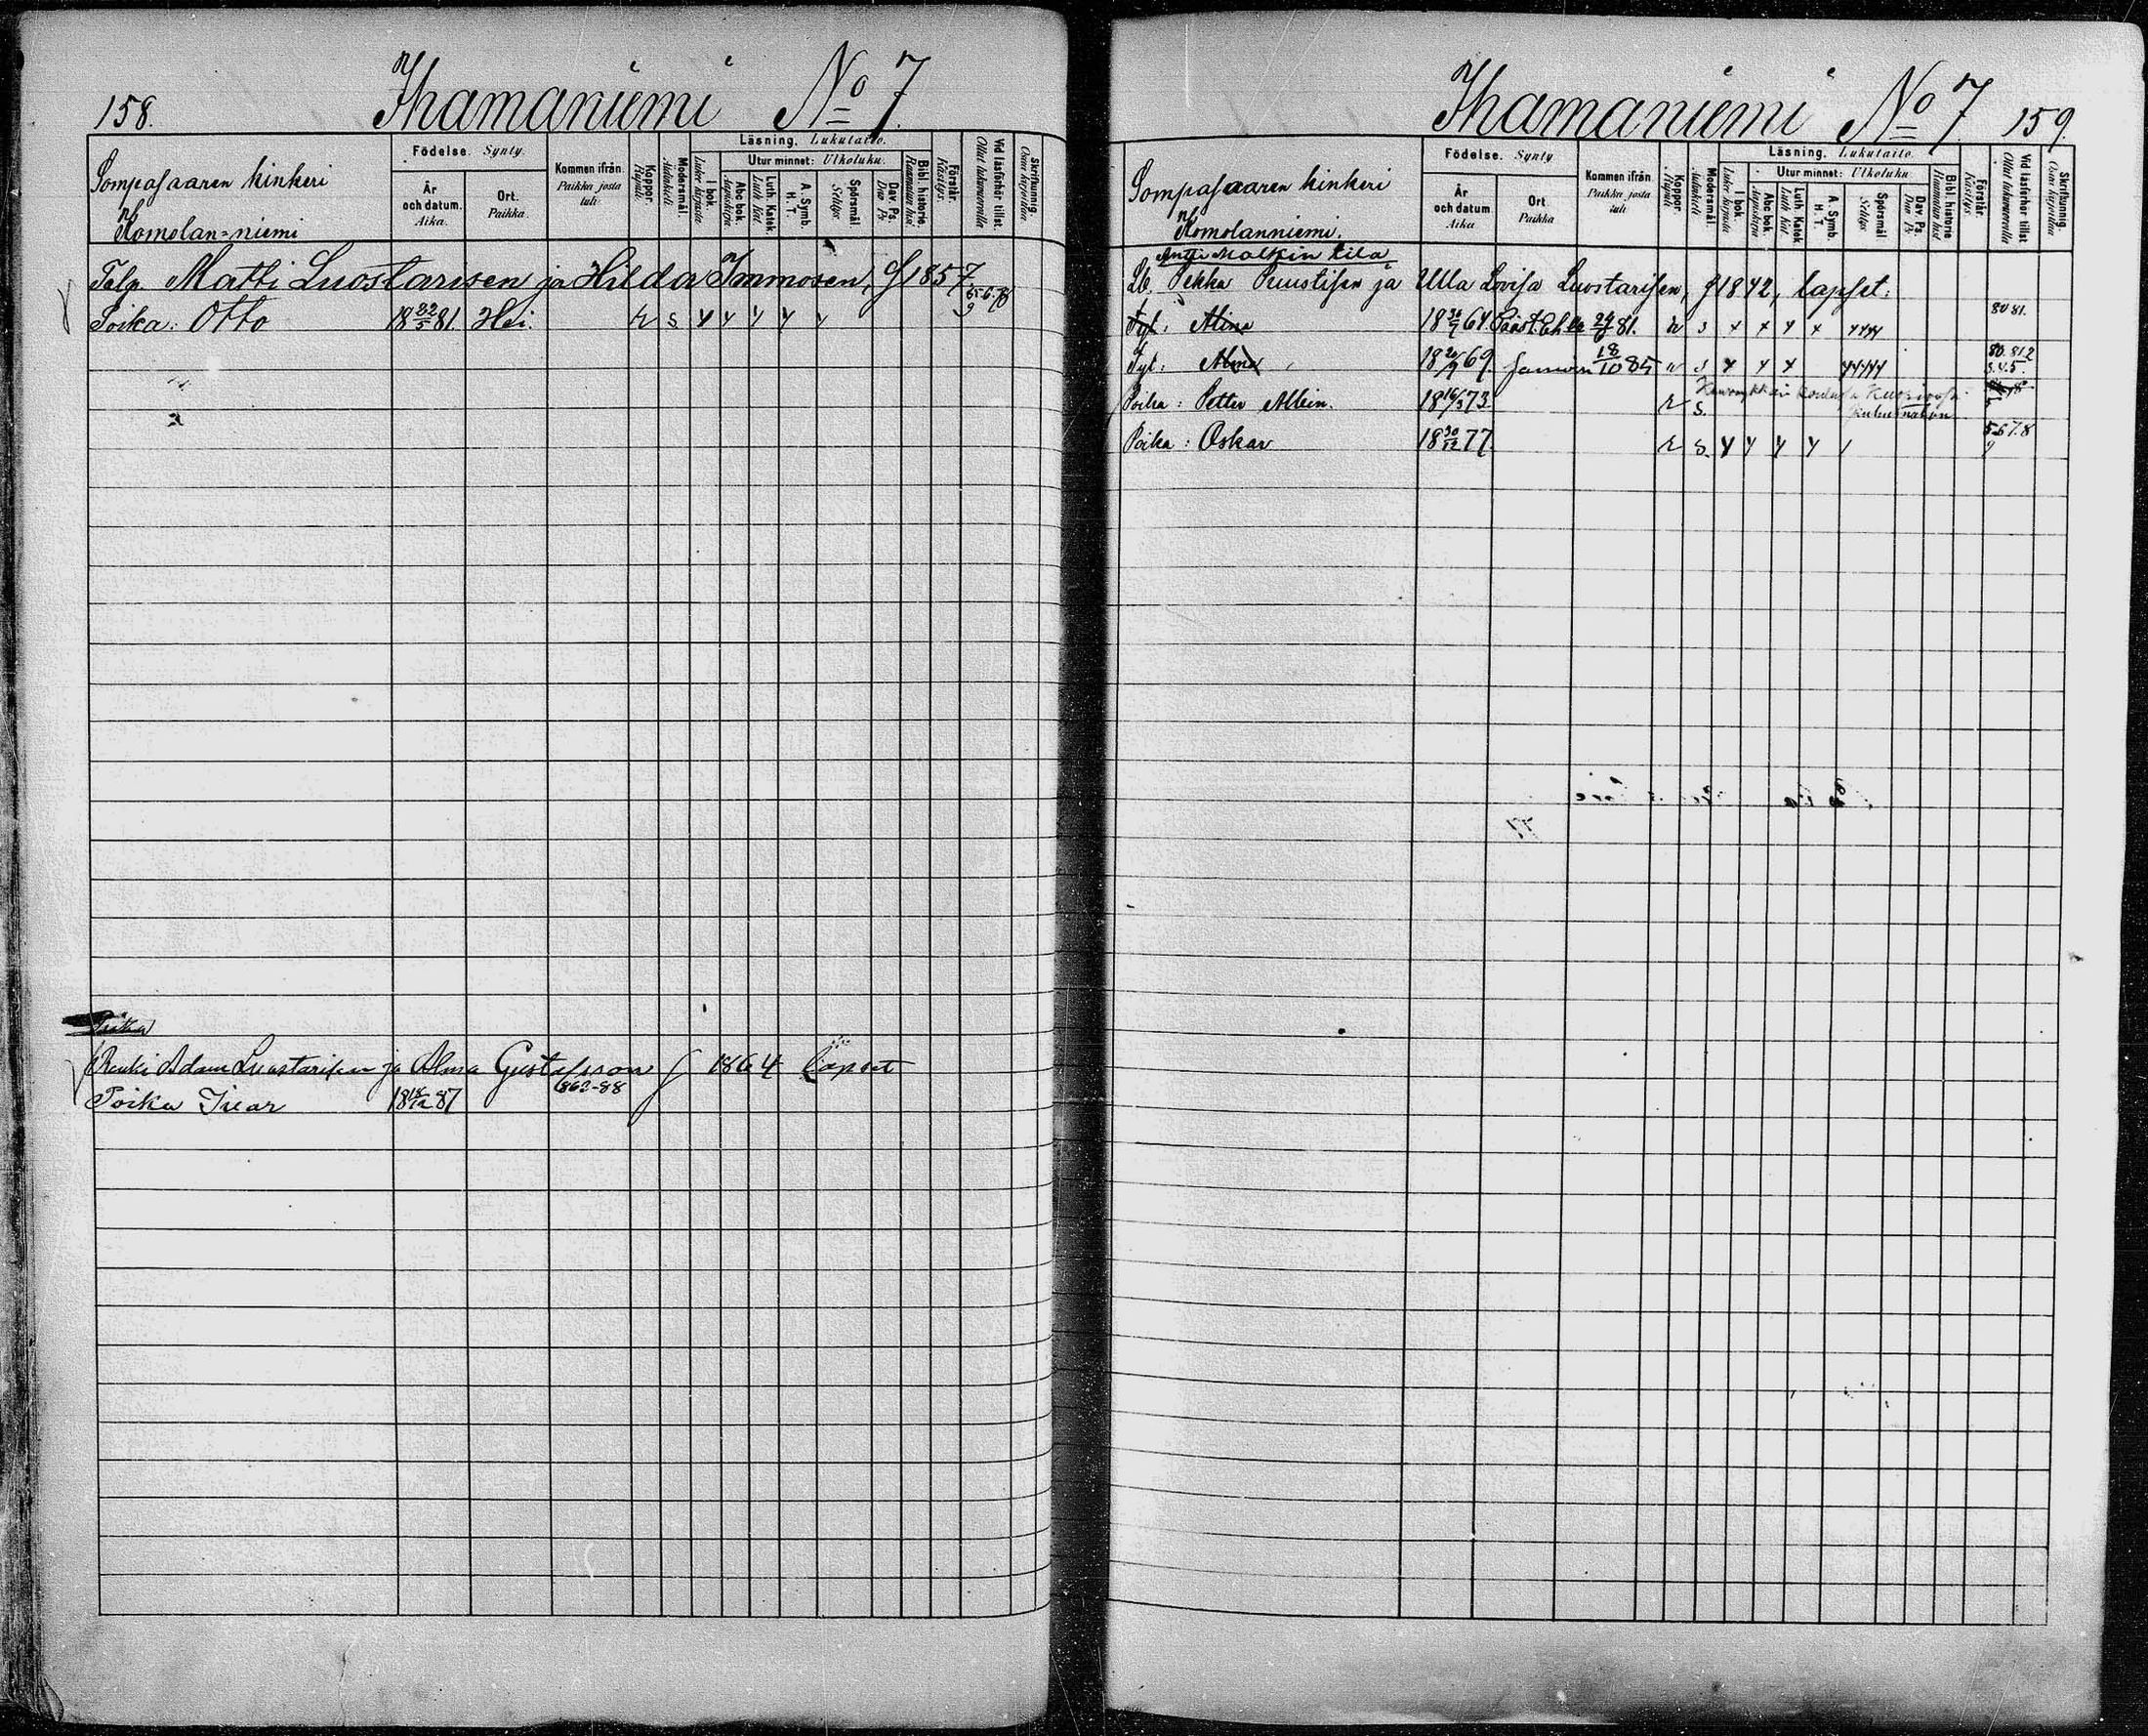 158. Ihamaniemi No 7.
Sompasaaren kinkeri
Komolan-niemi
Födelse. Synty.
År och datum. Aika.
Ort. Paikka.
Kommen ifrån. Paikka josta tuli.
Koppor. Rupuli
Modersmål. Äidinkieli
Läsning. Lukutaito.
I bok. Luku kirjasta
Utur minnet: Ulkoluku.
Abc bok. Aapiskirja
Luth. Katek. Luth. Kat.
A. Symb. H. T.
Spörsmål Selitys
Dav. Ps. Dav. Ps.
Bibl. historie Raamatun hist.
Förstår. Käsitys.
Vid läsförhör tillst. Ollut lukuvuorolla
Skrifkunnig. Osaa kirjoittaa
Matti Luostarisen ja Hilda Immosen, f 1857
Poika: Otto 18 22/5 81. Hei. r s
Poika
Renki Adam Luostarisen ja Alma Gustafsson f 1864 lapset
Poika Ivar 87
Ihamaniemi No 7. 159.
Sompasaaren kinkeri
Komolanniemi.
Födelse. Synty
År och datum Aika
Ort Paikka
Kommen ifrån. Paikka josta tuli
Koppor. Rupuli
Modersmål. Äidinkieli
Läsning. Lukutaito.
I bok. Luku kirjasta
Utur minnet: Ulkoluku
Abc bok. Aapiskirja
Luth. Katek. Luth. Kat.
A. Symb. H. T.
Spörsmål Selitys
Dav. Ps. Dav. Ps
Bibl. historie Raamatun hist
Förstår. Käsitys.
Vid läsförhör tillst Ollut lukuvuorolla
Skrifkunnig. Osaa kirjoittaa
Antti Malkin tila
Lb. Pekka Puustisen ja Ulla Lovisa Luostarisen, f 1842, lapset:
Tyt: 64 81. r s 80 81.
Tyt: 69. 18/10 85 r s 80. 81.2 3.4.5.
Poika: Petter Albin. 18 16/3 73. r s.
Poika: Oskar 18 30/12 77. r s. 5.6.7.8 9